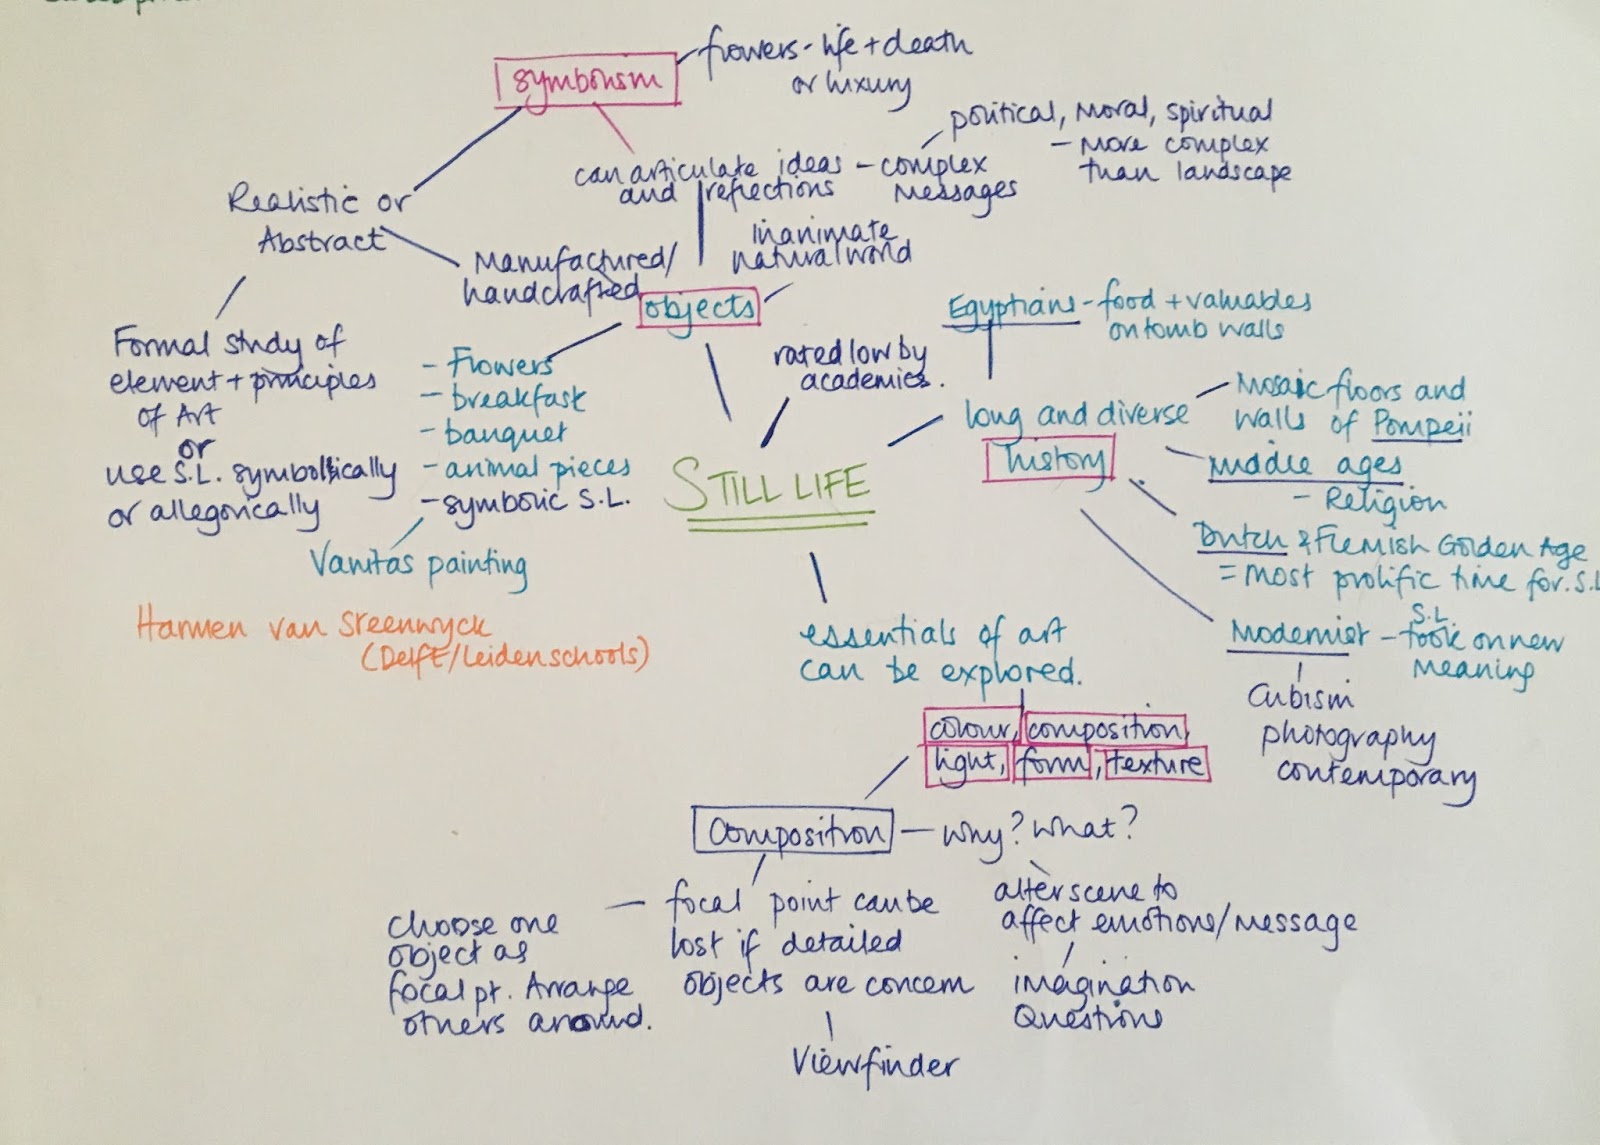 symbolism
flowers - life + death
or luxury
political, moral, spiritual
- more complex
than landscape
can articulate ideas - complex
and reflections messages
Realistic or
Abstract
Manufactured/
handcrafted
inanimate
natural world
objects
Formal study of
element + principles
of Art
or
use S.L. symbolically
or allegorically
- Flowers
- breakfast
- banquet
- animal pieces
- symbolic S.L.
Vanitas painting
Harmen van Steenwyck
(Delft/Leiden schools)
rated low by
academies.
STILL LIFE
Egyptians - food + valuables
on tomb walls
long and diverse
history
Mosaic floors and
walls of Pompeii
Middle ages
- Religion
Dutch & Flemish Golden Age
= most prolific time for S.L
Modernist - S.L. took on new
meaning
Cubism
photography
contemporary
essentials of art
can be explored.
colour, composition,
light, form, texture
Composition - why? what?
focal point can be
lost if detailed
objects are concern
Viewfinder
choose one
object as
focal pt. Arrange
others around.
alter scene to
affect emotions/message
imagination
Questions